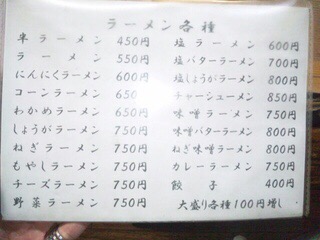 ラーメン各種
半ラーメン 450円
ラーメン 550円
にんにくラーメン 600円
コーンラーメン 650
わかめラーメン 650
しょうがラーメン 750円
ねぎラーメン 750円
もやしラーメン 750円
チーズラーメン 750円
野菜ラーメン 750円
塩ラーメン 600円
塩バターラーメン 700円
塩しょうがラーメン 800円
チャーシューメン 850円
味噌ラーメン 750円
味噌バターラーメン 800円
ねぎ味噌ラーメン 800円
カレーラーメン 750円
餃子 400円
大盛り各種100円増し